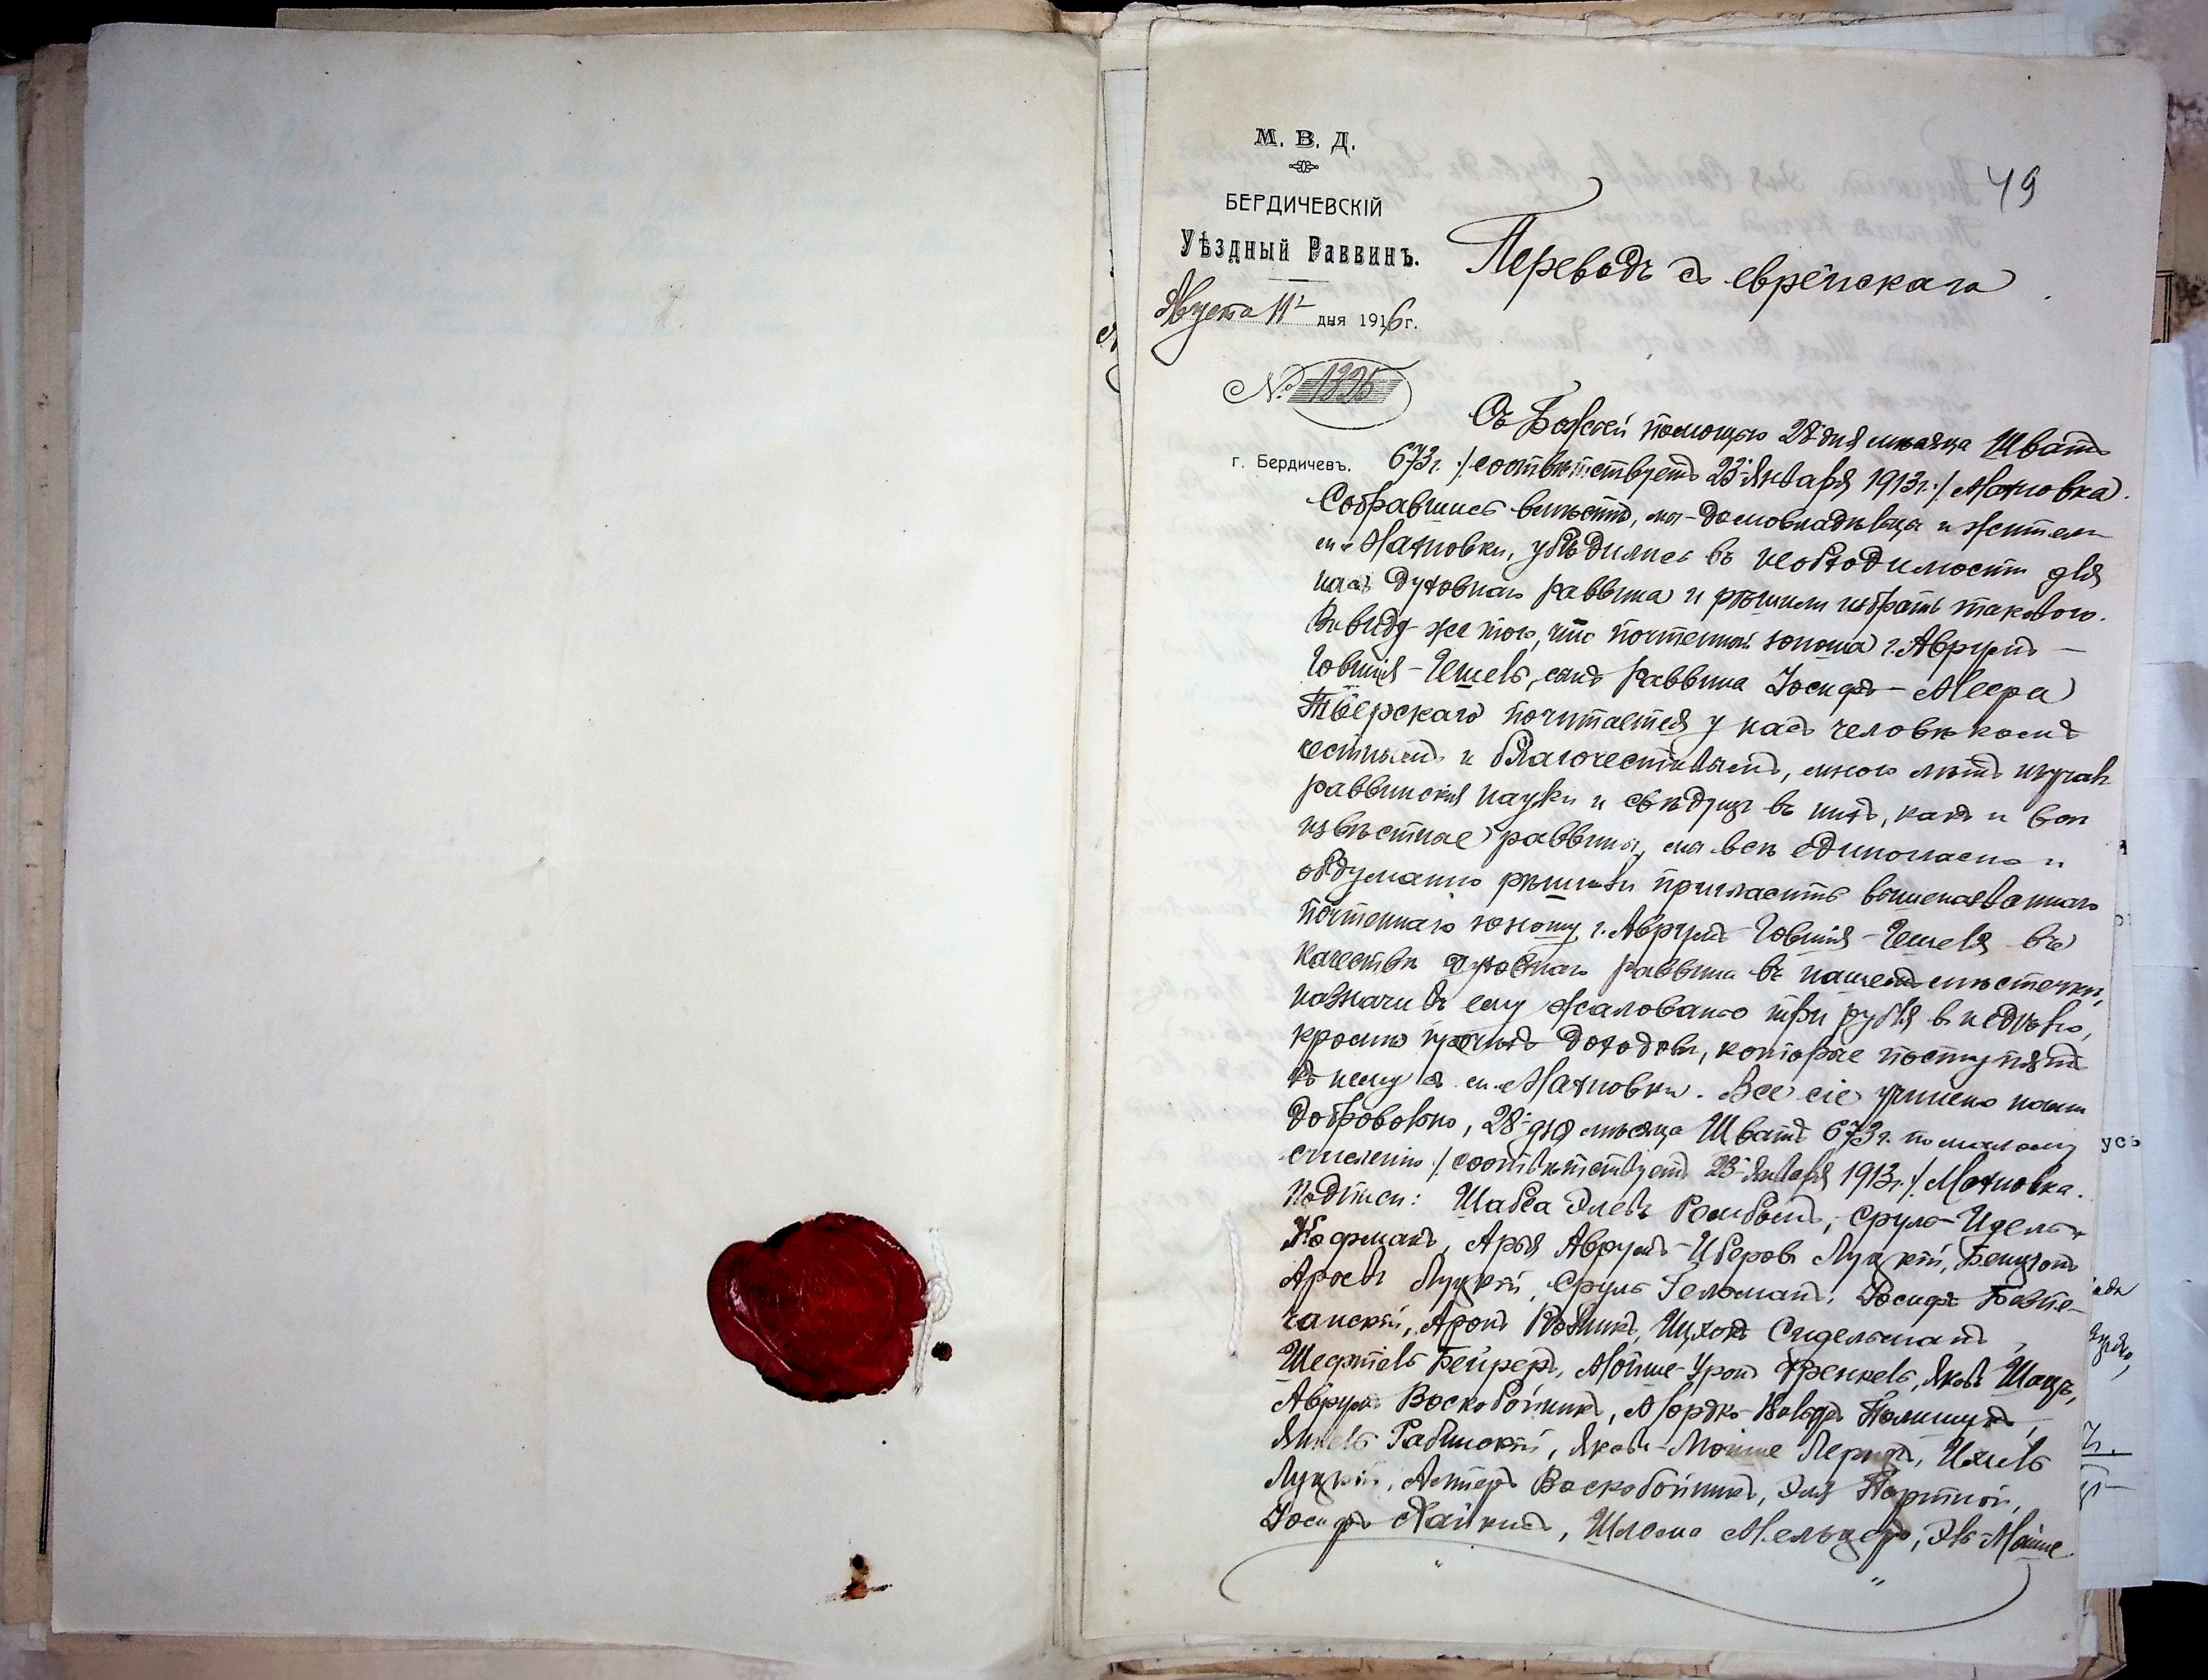 49
М. В. Д.
БЕРДИЧЕВСКІЙ
Уѣздный Раввинъ.
Августа 11 дня 1916 г.
№ 1325
г. Бердичевъ.
Переводъ съ еврейскаго
Съ Божьей помощью 28 дня мѣсяца Шватъ
673 г. /соотвѣтствуетъ 23 Января 1913 г./ Махновка.
Собравшись вмѣстѣ, мы - домовладѣльцы и жители
м. Махновки, убѣдились въ необходимости для
насъ духовнаго раввина и рѣшили избрать таковаго.
Въ виду же того, что почтенный юноша г. Аврумъ -
Іовшія - Гешель, сынъ раввина Іосифъ - Меера
Тверскаго почитается у насъ человѣкомъ
честнымъ и благочестивымъ, много лѣтъ изучалъ
раввинскія науки и свѣдущъ въ нихъ, какъ и всѣ
извѣстные раввины, мы всѣ единогласно и
обдуманно рѣшили пригласить вышеназваннаго
почтеннаго юношу г. Аврумъ - Іовшія - Гешеля въ
качествѣ духовнаго раввина въ нашемъ мѣстечкѣ,
назначивъ ему жалованье три рубля въ недѣлю,
кромѣ прочихъ доходовъ, которые поступятъ
къ нему съ м. Махновки. Все сіе учинено нами
добровольно, 28 дня мѣсяца Шватъ 673 г. по малому
счисленію /соотвѣтствуетъ 23 Января 1913 г./ Махновка.
Подписи: Шабса Элевъ Ромбомъ, Сруль - Идель
Кофманъ, Арья Аврумъ - Иберовъ Луцкій, Бенціонъ
Ароевъ Луцкій, Сруль Гельманъ, Іосифъ
Аронъ Ицхокъ Сидельманъ,
Шефтель Бейреръ, Мойше Френкель, Яковъ Шацъ,
Аврумъ Воскобойникъ, Мордко - Вольфъ Полищукъ,
Янкель Рабинскій, Яковъ - Мойше Лернеръ,
Луцкій, Воскобойникъ, Эля Портной,
Іосифъ Хайкинъ, Шлема Мельцеръ, Эль Мойше